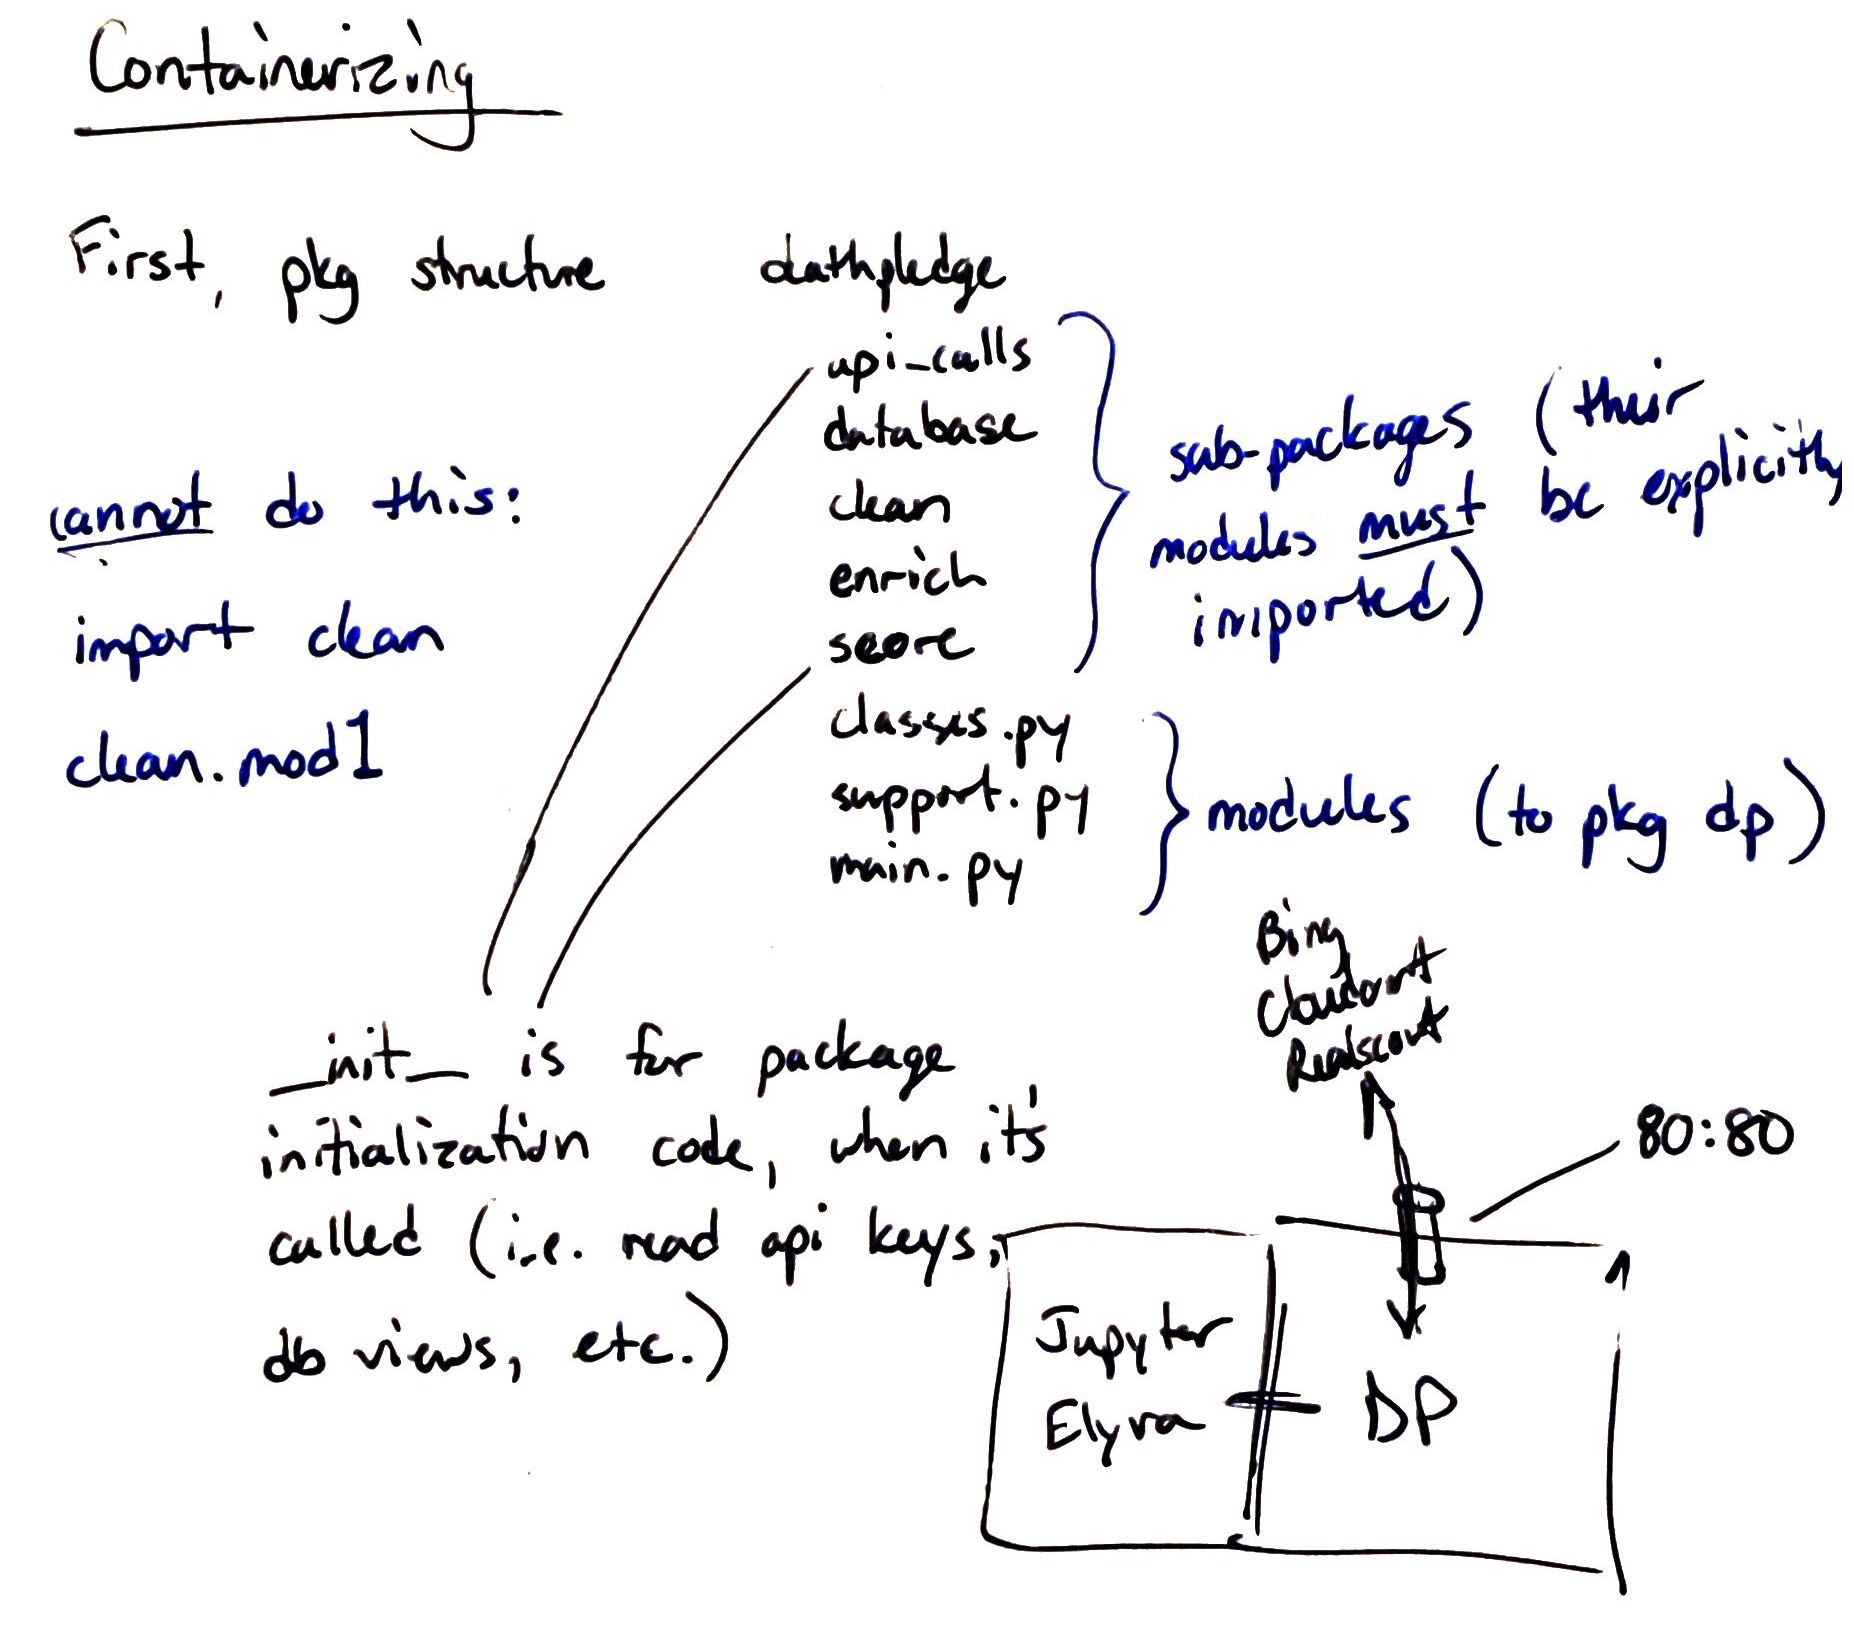 Containerizing
First, pkg structure
dathpledge
api_calls
database
clean
enrich
score
classes.py
support.py
main.py
sub-packages (their
modules must be explicitly
imported)
modules (to pkg dp)
cannot do this:
import clean
clean.mod1
_init_ is for package
initialization code, when it's
called (i.e. read api keys,
db views, etc.)
Bing
Cloudant
Realscout
80:80
Jupyter
Elyra
DP